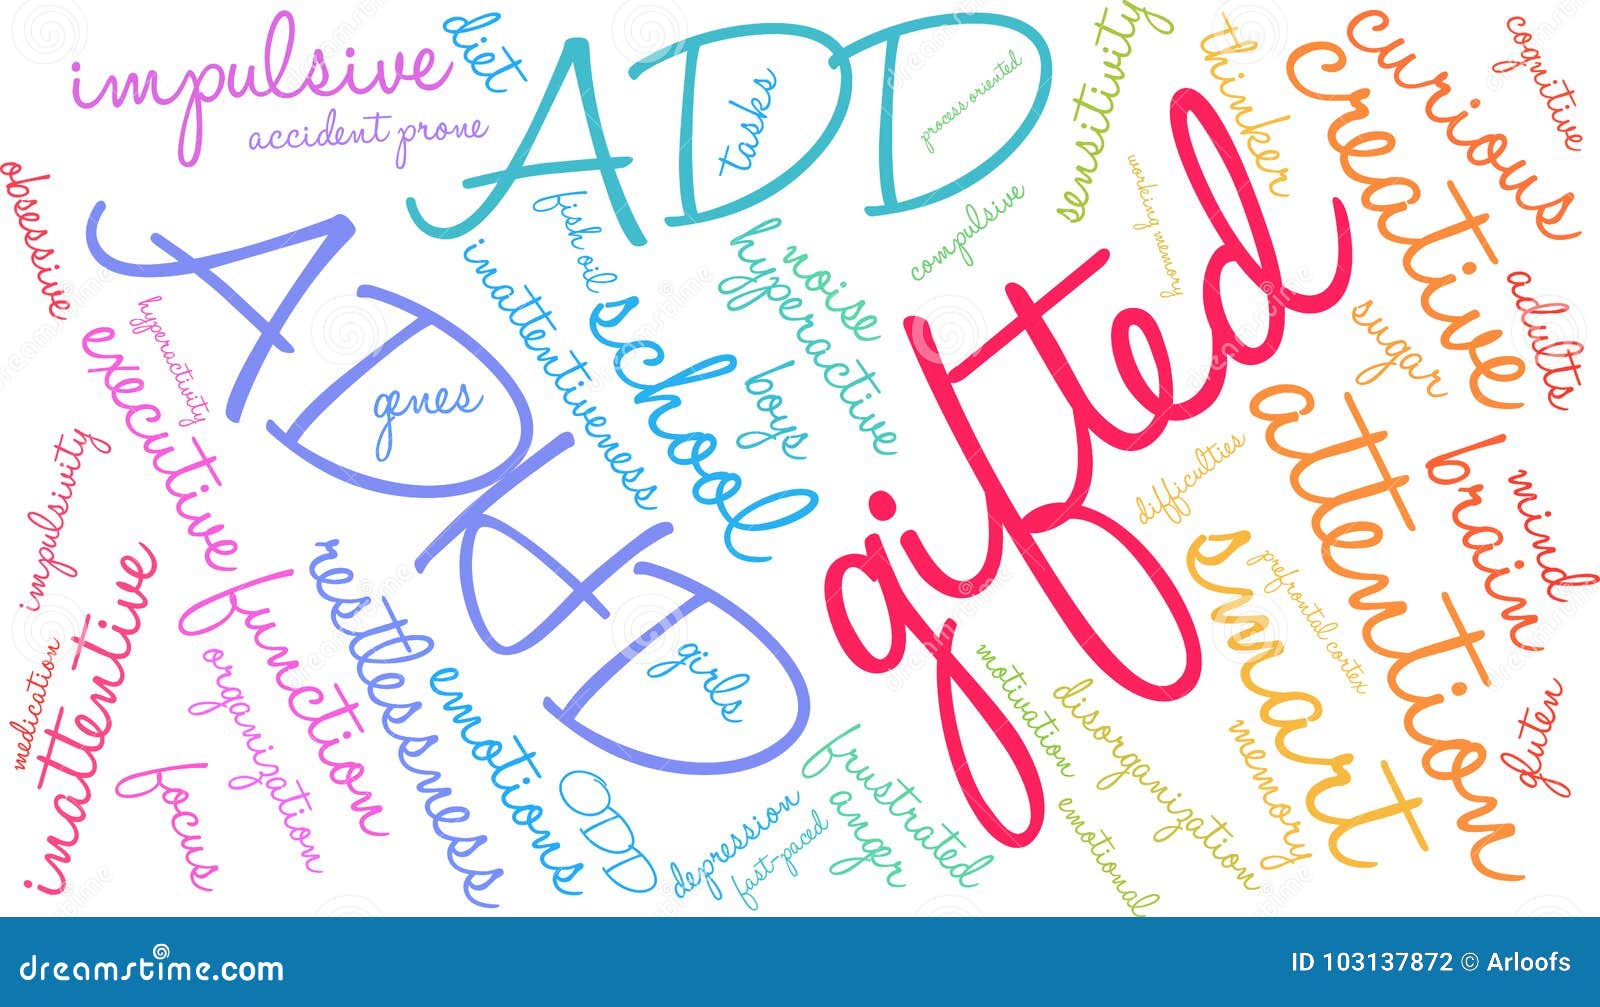 impulsive
accident prone
diet
ADD
tasks
process oriented
sensitivity
thinker
curious
creative
cognitive
obsessive
ADHD
genes
girls
hyperactivity
executive function
fish oil
inattentiveness
school
noise
hyperactive
boys
compulsive
working memory
gifted
sugar
adults
attention
brain
mind
difficulties
smart
prefrontal cortex
impulsivity
inattentive
medication
focus
organization
restlessness
emotions
ODD
depression
fast-paced
frustrated
anger
motivation
emotional
disorganization
memory
gluten
dreamstime.com
ID 103137872 © Arloofs